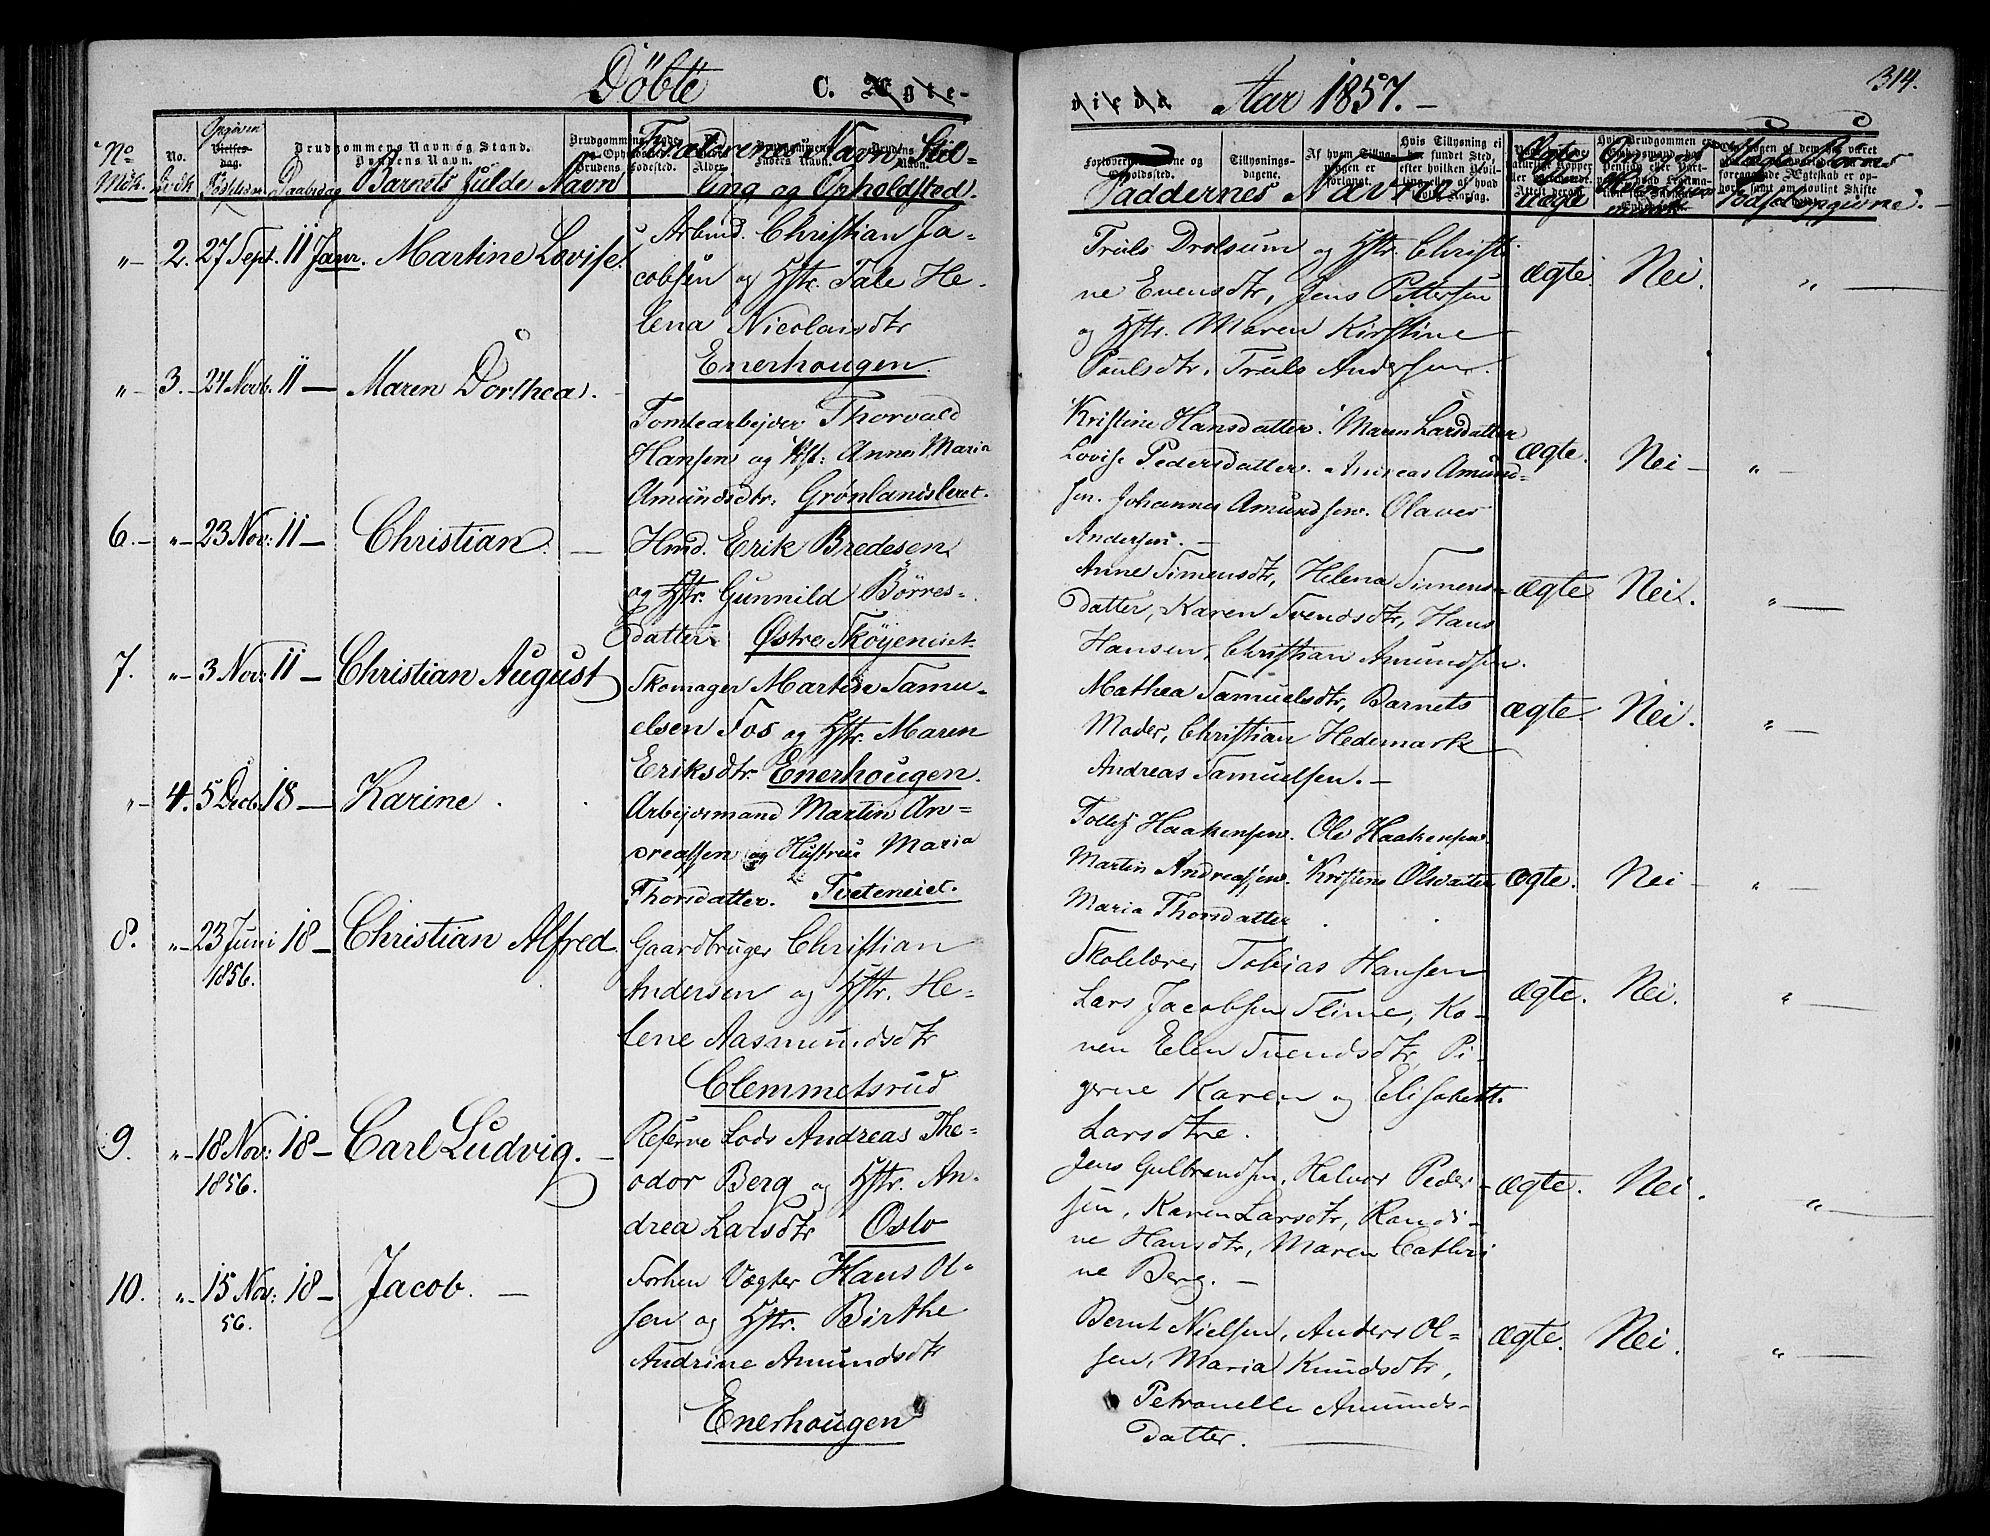 Döbte C. Ægte-
viede. Aar 1857.-
314.
No Mdk. No. Qvdk Opgiven Födselsdato Daabsdag Barnets fulde Navn Forældrenes Navn, Stil-
ling og Opholdsted. Faddernes Navne Ægte eller uægte
"- 2. 27 Sept. 11 Janr. Martine Lovise. Arbmd. Christian Ja-
cobsen og Hstr. Tale He-
lena Nicolaisdtr
Enerhougen.
Truls Drolsum og Hstr. Christi-
ne Evensdtr, Jens Pettersen
og Hstr. Maren Kirstine
Paulsdtr, Truls Andersen.
ægte Nei. "
"- 3. 24 Novb. 11 — Maren Dorthea. Tomtearbejder Thorvald
Hansen og Hst: Anne Maria
Amundsdtr. Grönlandsleret.
Kristine Hansdatter. Maren Larsdatter
Lovise Pedersdatter. Andreas Amund-
sen. Johannes Amundsen. Olaves
Andersen. -
ægte. Nei - " -
6. - "- 23 Nov: 11 — Christian. — Hmd. Erik Bredesen
og Hstr. Gunnild Börres-
datter Østre Sköyeneiet.
Anne Simensdtr, Helena Simens-
datter, Karen Svendsdtr, Hans
Hansen, Christian Amundsen.
ægte Nei. "
7. "- 3 Nov: 11 — Christian August Skomager Martin Samu-
elsen Fos og Hstr. Maren
Eriksdtr. Enerhougen.
Mathea Samuelsdtr, Barnets
Moder, Christian Hedemark
Andreas Samuelsen. -
ægte. Nei. "
"- 4. 5 Decb. 18 — Karine. Arbejdsmand Martin An-
dreassen og Hustrue Maria
Thorsdatter. Tveteneiet.
Tollef Haakensen. Ole Haakensen.
Martin Andreassen. Kristine Olsdatter
Maria Thorsdatter
ægte. Nei - " -
8. "- 23 Juni 18 — Christian Alfred
1856.
Gaardbruger Christian
Andersen og Hstr. He-
lene Aasmundsdtr
Clemmetsrud
Skolelærer Tobias Hansen
Lars Jacobsen Slime, Ko-
nen Elen Svendsdtr, Pi-
gerne Karen og Elisabeth
Larsdtre.
ægte. Nei. "
9. "- 18 Nov: 18 — Carl Ludvig. —
1856.
Reserve Lods Andreas The-
odor Berg og Hstr. An-
drea Larsdtr Oslo
Jens Gulbrandsen, Halvor Peder-
sen, Karen Larsdtr, Randi-
ne Hansdtr, Maren Cathri
ne Berg. -
ægte. Nei. "
10. "- 15 Nov: 18 — Jacob. —
56.
Forhen Vægter Hans Ol-
sen og Hstr. Birthe
Andrine Amundsdtr
Enerhougen
Bernt Nielsen, Anders Ol-
sen, Maria Knudsdtr,
Petronelle Amunds-
datter.
ægte. Nei. "